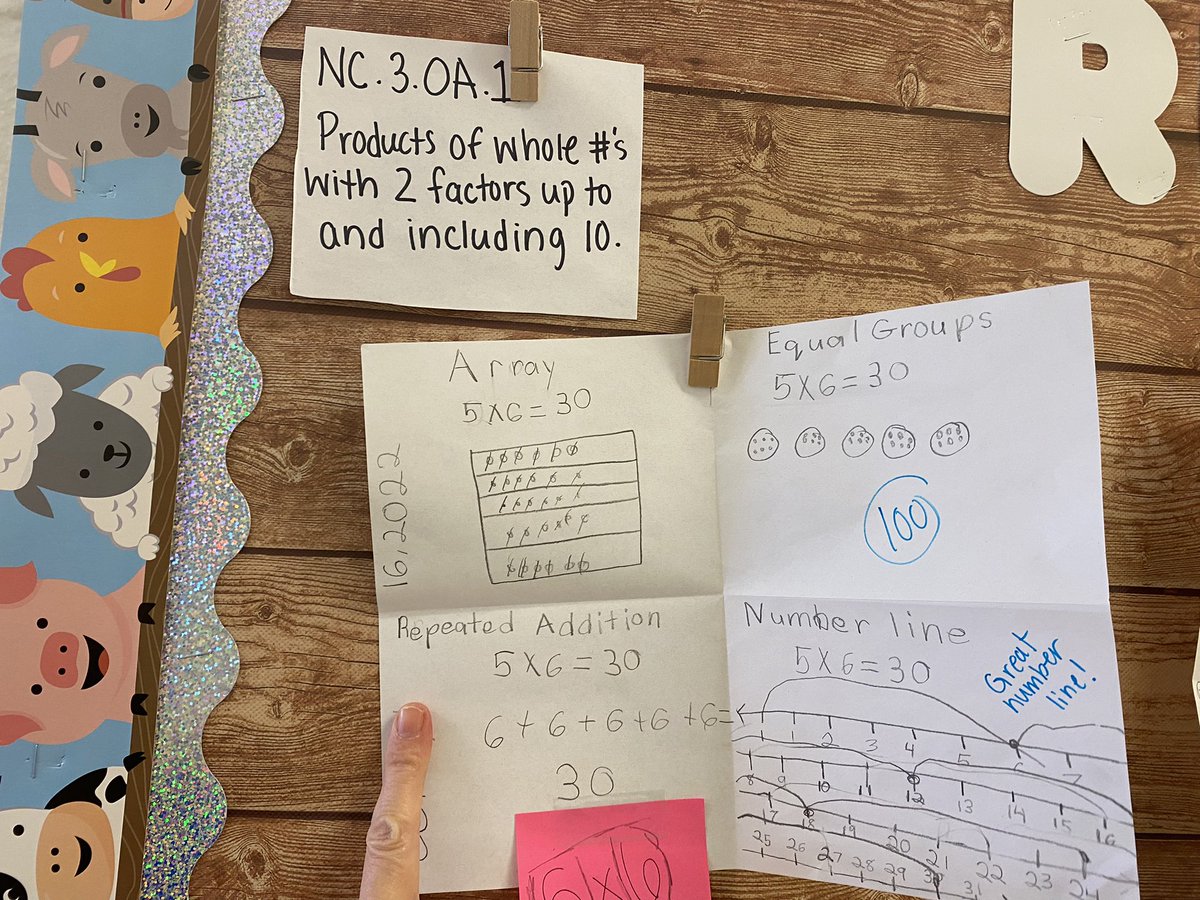 NC.3.OA.1
Products of whole #'s
with 2 factors up to
and including 10.
R
Array
5x6=30
16,2022
Equal Groups
5x6=30
100
Repeated Addition
5x6=30
6+6+6+6+6=
30
Number line
5x6=30
Great
number
line!
1 2 3 4 5 6 7
8 9 10 11 12 13 14 15 16
17 18 19 20 21 22 23 24
25 26 27 28 29 30 31